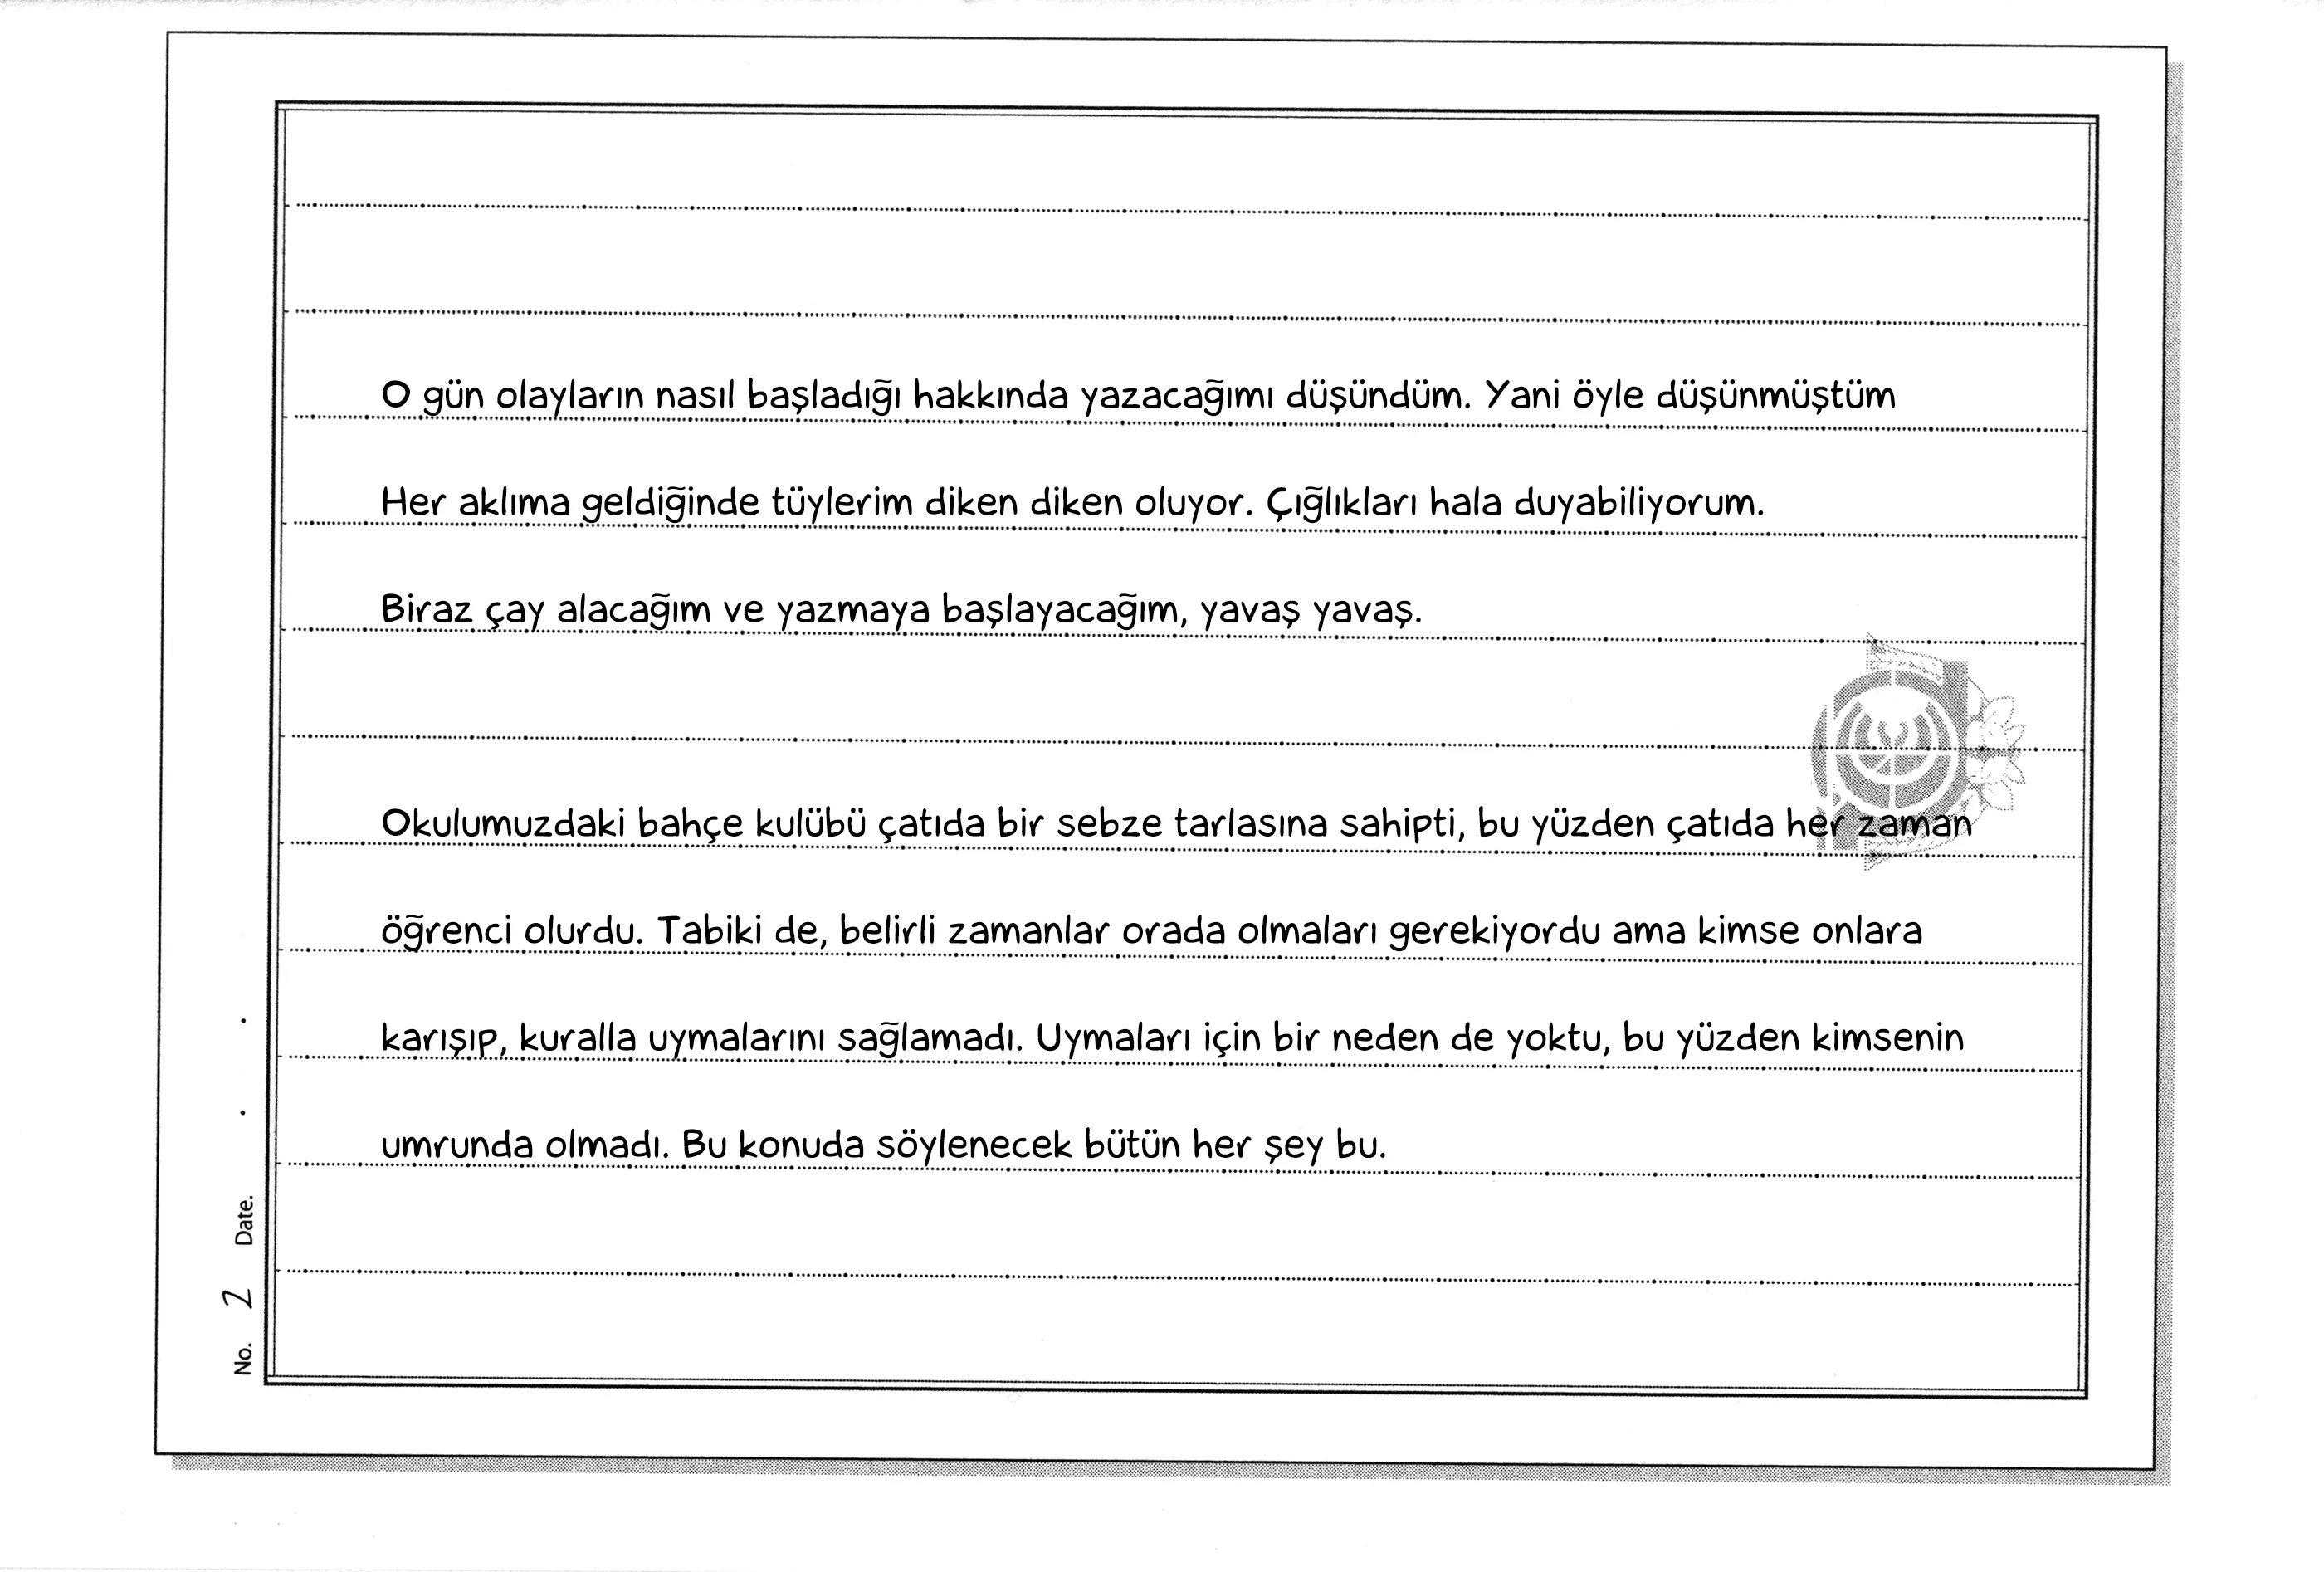 O gün olayların nasıl başladığı hakkında yazacağımı düşündüm. Yani öyle düşünmüştüm
Her aklıma geldiğinde tüylerim diken diken oluyor. Çığlıkları hala duyabiliyorum.
Biraz çay alacağım ve yazmaya başlayacağım, yavaş yavaş.
Okulumuzdaki bahçe kulübü çatıda bir sebze tarlasına sahipti, bu yüzden çatıda her zaman
öğrenci olurdu. Tabiki de, belirli zamanlar orada olmaları gerekiyordu ama kimse onlara
karışıp, kuralla uymalarını sağlamadı. Uymaları için bir neden de yoktu, bu yüzden kimsenin
umrunda olmadı. Bu konuda söylenecek bütün her şey bu.
No. 2 Date. . .